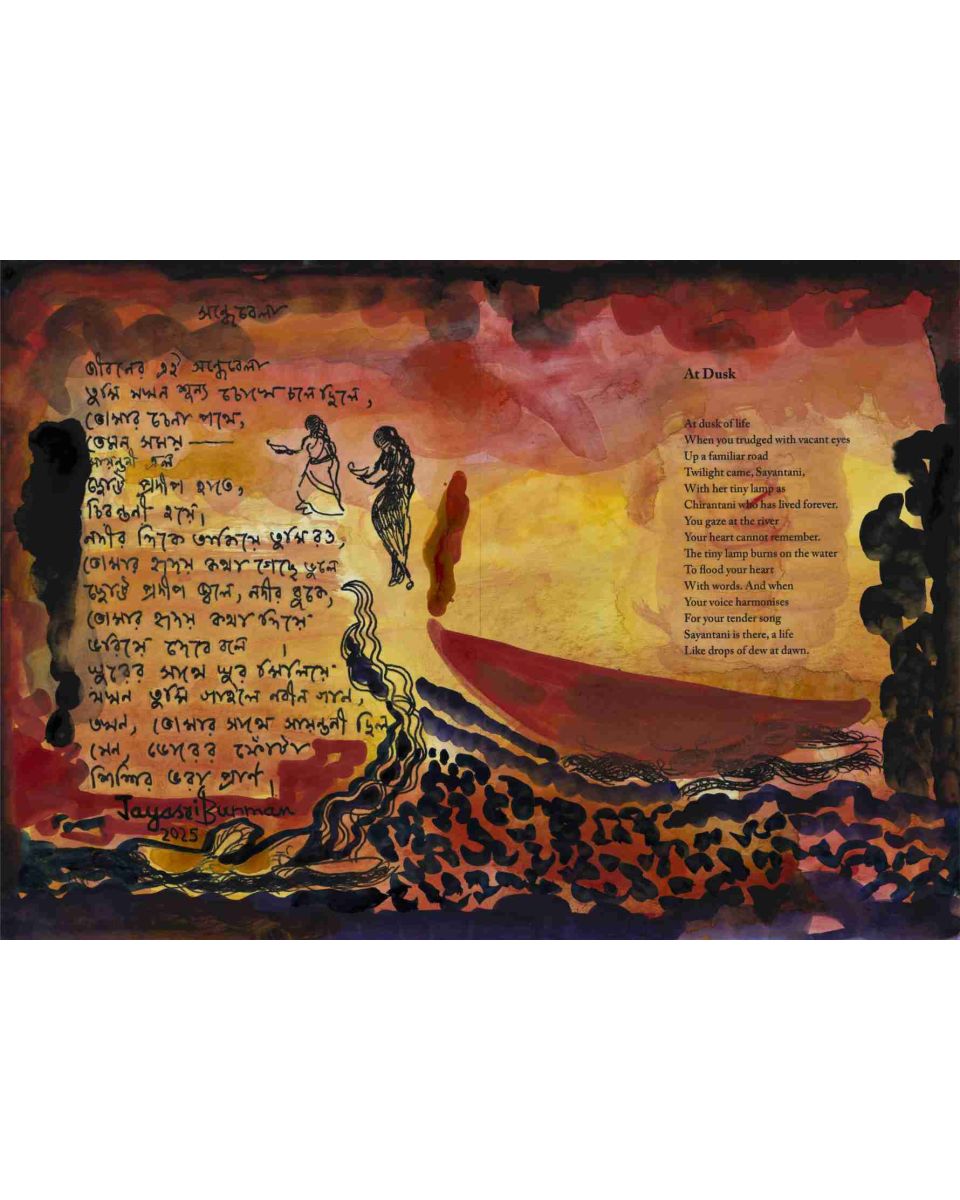 সন্ধেবেলা
জীবনের এই সন্ধেবেলা
তুমি যখন শূন্য চোখে চলেছিলে,
তোমার চেনা পথে,
তেমন সময় —
সায়ন্তনী এল
ছোট্ট প্রদীপ হাতে,
চিরন্তনী হয়ে।
নদীর দিকে তাকিয়ে তুমি রও,
তোমার হৃদয় কথা গেছে ভুলে
ছোট্ট প্রদীপ জ্বলে, নদীর বুকে,
তোমার হৃদয় কথা দিয়ে
ভরিয়ে দেবে বলে ।
সুরের সাথে সুর মিলিয়ে
যখন তুমি গাইলে নবীন গান,
তখন, তোমার সাথে সায়ন্তনী ছিল
যেন ভোরের ফোঁটা
শিশির ভরা প্রাণ।
Jayasri Burman
2025
At Dusk
At dusk of life
When you trudged with vacant eyes
Up a familiar road
Twilight came, Sayantani,
With her tiny lamp as
Chirantani who has lived forever.
You gaze at the river
Your heart cannot remember.
The tiny lamp burns on the water
To flood your heart
With words. And when
Your voice harmonises
For your tender song
Sayantani is there, a life
Like drops of dew at dawn.